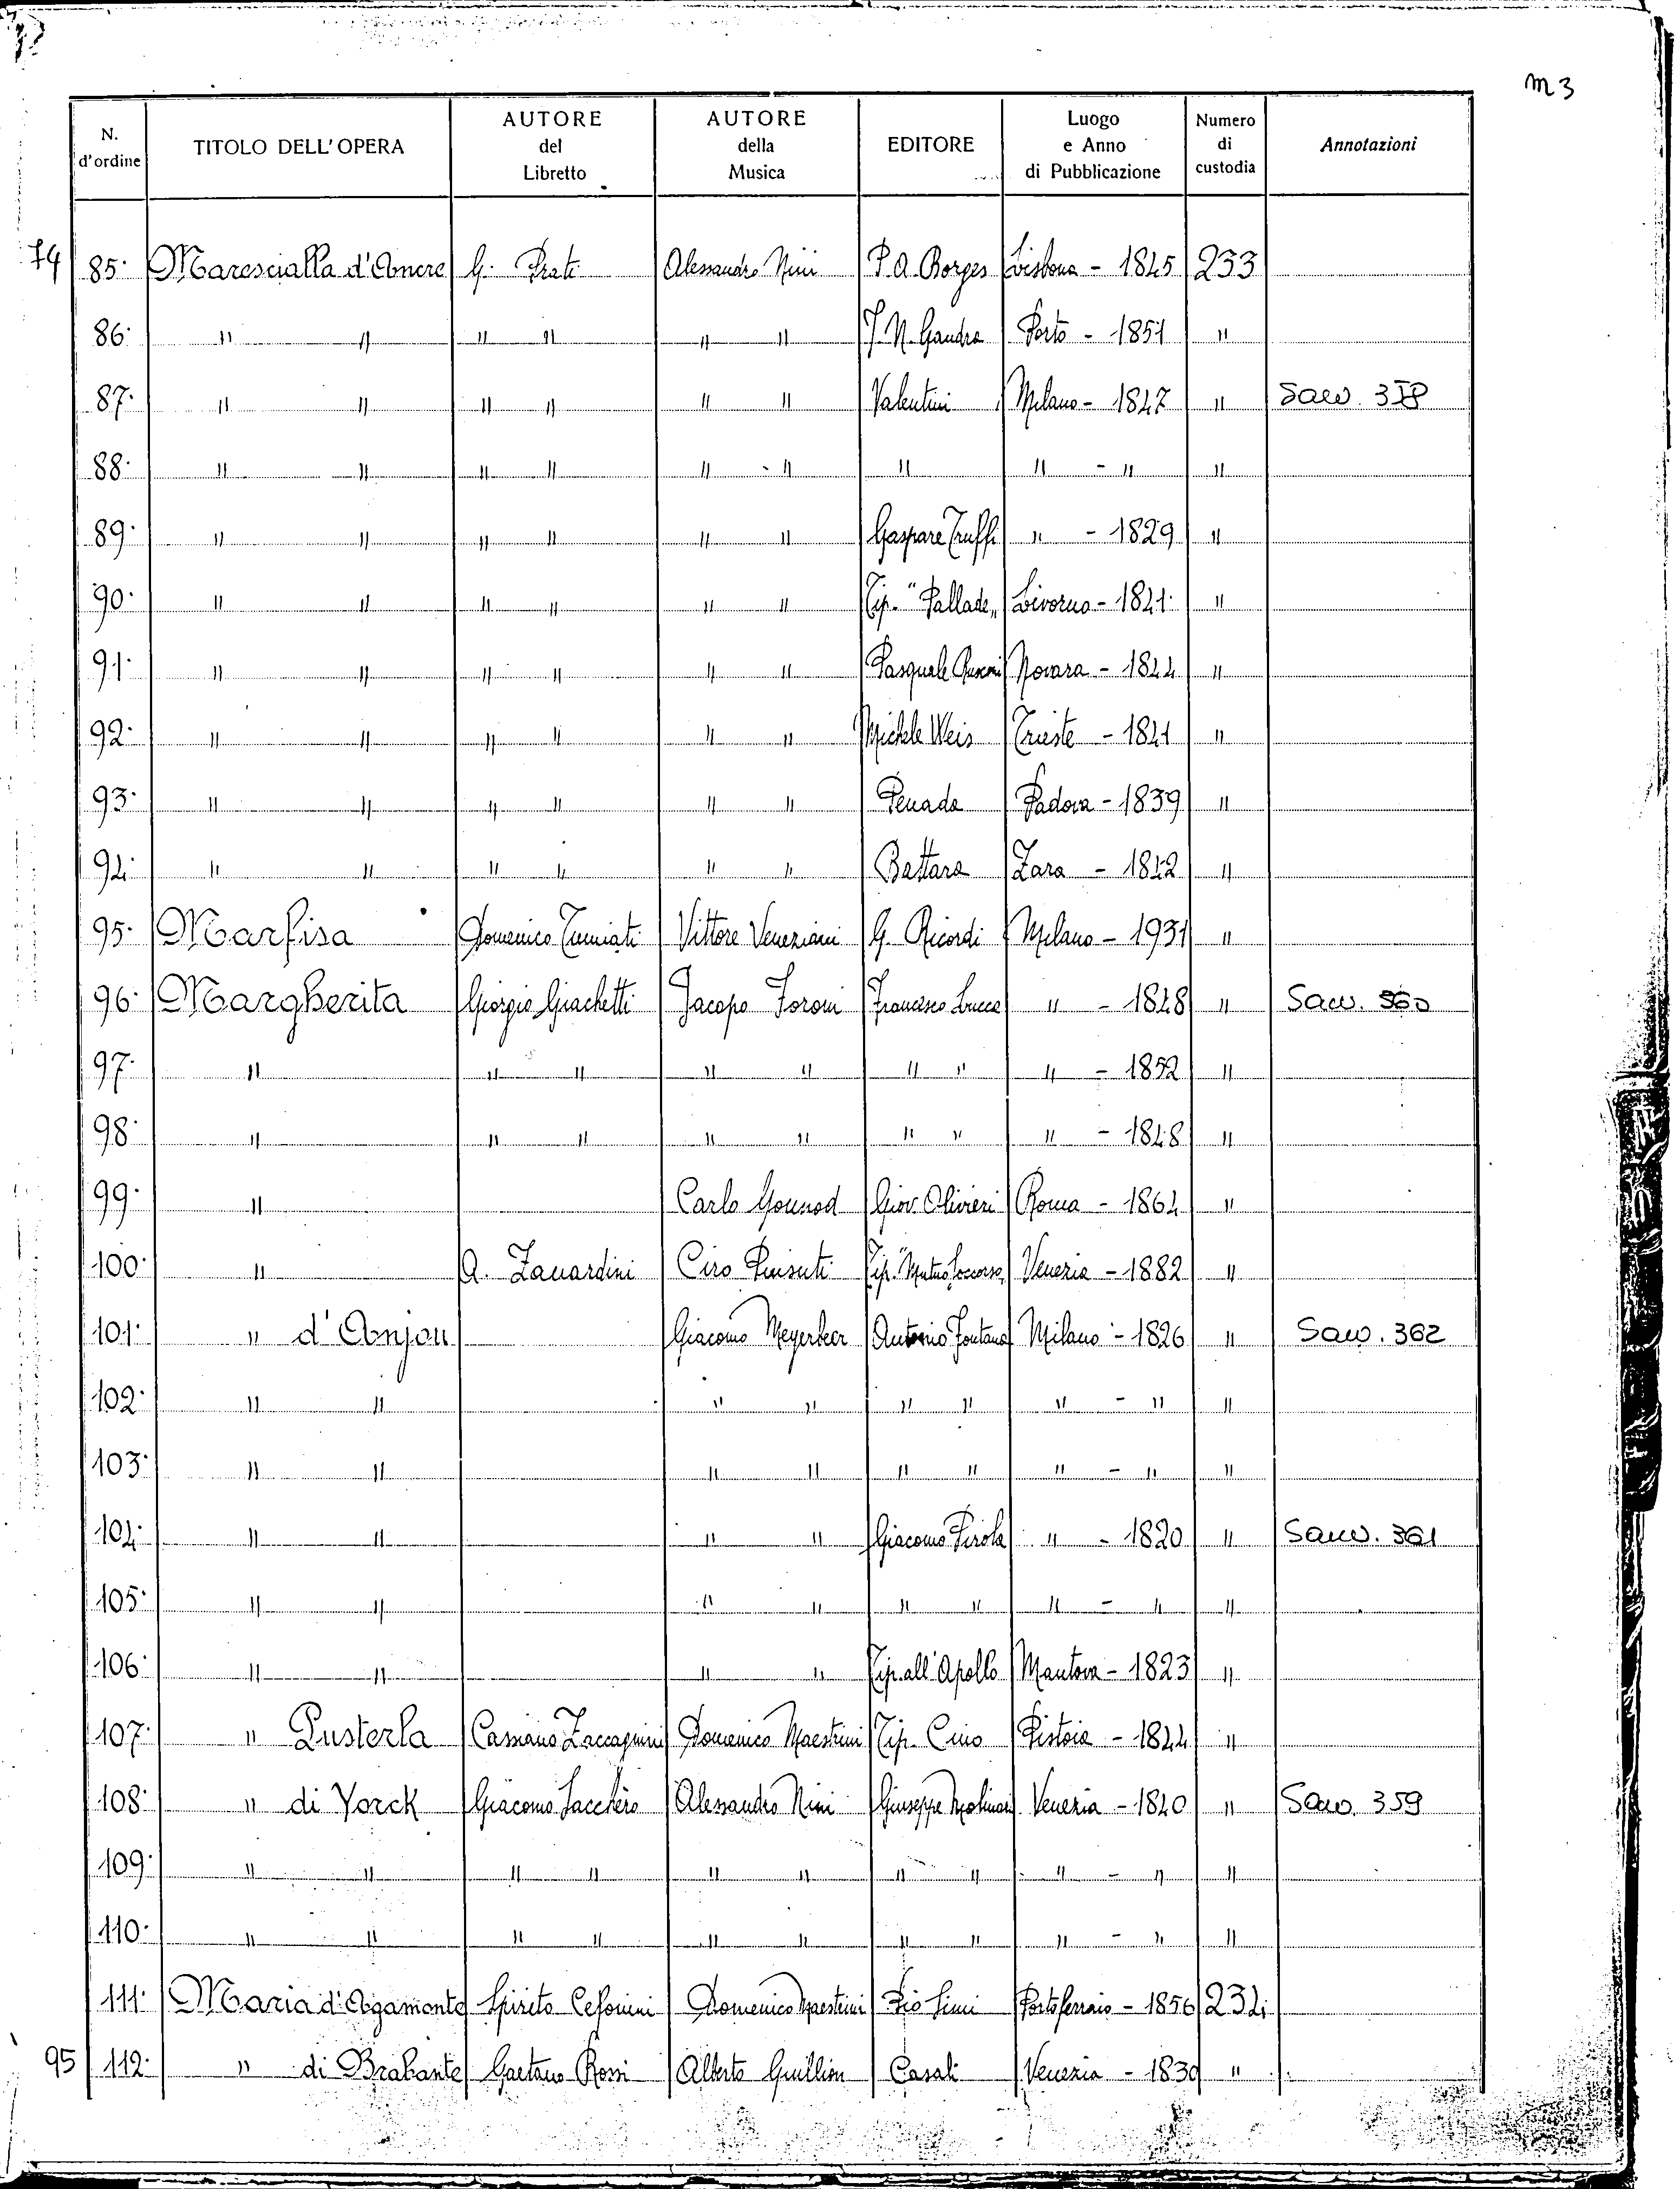 m 3
N. d'ordine TITOLO DELL'OPERA AUTORE del Libretto AUTORE della Musica EDITORE Luogo e Anno di Pubblicazione Numero di custodia Annotazioni
74 85. Marescialla d'Ancre G. Prati Alessandro Nini P. A. Borges Lisbona - 1845 233
86. " " " " " " J. N. Gandra Porto - 1851 "
87. " " " " " " Valentini Milano - 1847 " Saw. 358
88. " " " " " " " " - " "
89. " " " " " " Gaspare Truffi " - 1829 "
90. " " " " " " Tip. "Pallade" Livorno - 1841 "
91. " " " " " " Pasquale Novara - 1844 "
92. " " " " " " Michele Weis Trieste - 1841 "
93. " " " " " " Penada Padova - 1839 "
94. " " " " " " Battara Zara - 1842 "
95. Marfisa Domenico Tumiati Vittore Veneziani G. Ricordi Milano - 1931 "
96. Margherita Giorgio Giachetti Jacopo Foroni Francesco Lucca " - 1848 " Saw. 360
97. " " " " " " " " - 1852 "
98. " " " " " " " " - 1848 "
99. " Carlo Gounod Giov. Olivieri Roma - 1864 "
100. " A. Zanardini Ciro Pinsuti Tip. "Mutuo Soccorso" Venezia - 1882 "
101. " d'Anjou Giacomo Meyerbeer Antonio Fontana Milano - 1826 " Saw. 362
102. " " " " " " " - " "
103. " " " " " " " - " "
104. " " " " Giacomo Pirola " - 1820 " Saw. 361
105. " " " " " " " - " "
106. " " " " Tip. all'Apollo Mantova - 1823 "
107. " Pusterla Cassiano Zaccagnini Domenico Maestrini Tip. Cino Pistoia - 1844 "
108. " di Yorck Giacomo Sacchèro Alessandro Nini Giuseppe Molinari Venezia - 1840 " Saw. 359
109. " " " " " " " " " - " "
110. " " " " " " " " " - " "
111. Maria d'Agamonte Spirito Cesonini Domenico Maestrini Pio Simi Portoferraio - 1856 234
95 112. " di Brabante Gaetano Rossi Alberto Guillion Casali Venezia - 1830 "